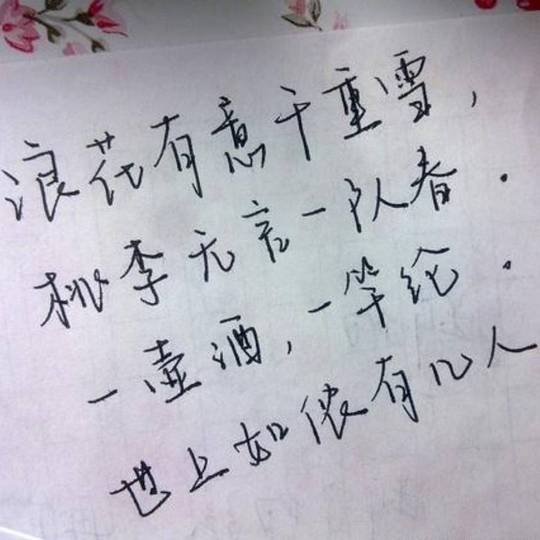 浪花有意千重雪，
桃李无言一队春．
一壶酒，一竿纶．
世上如侬有几人